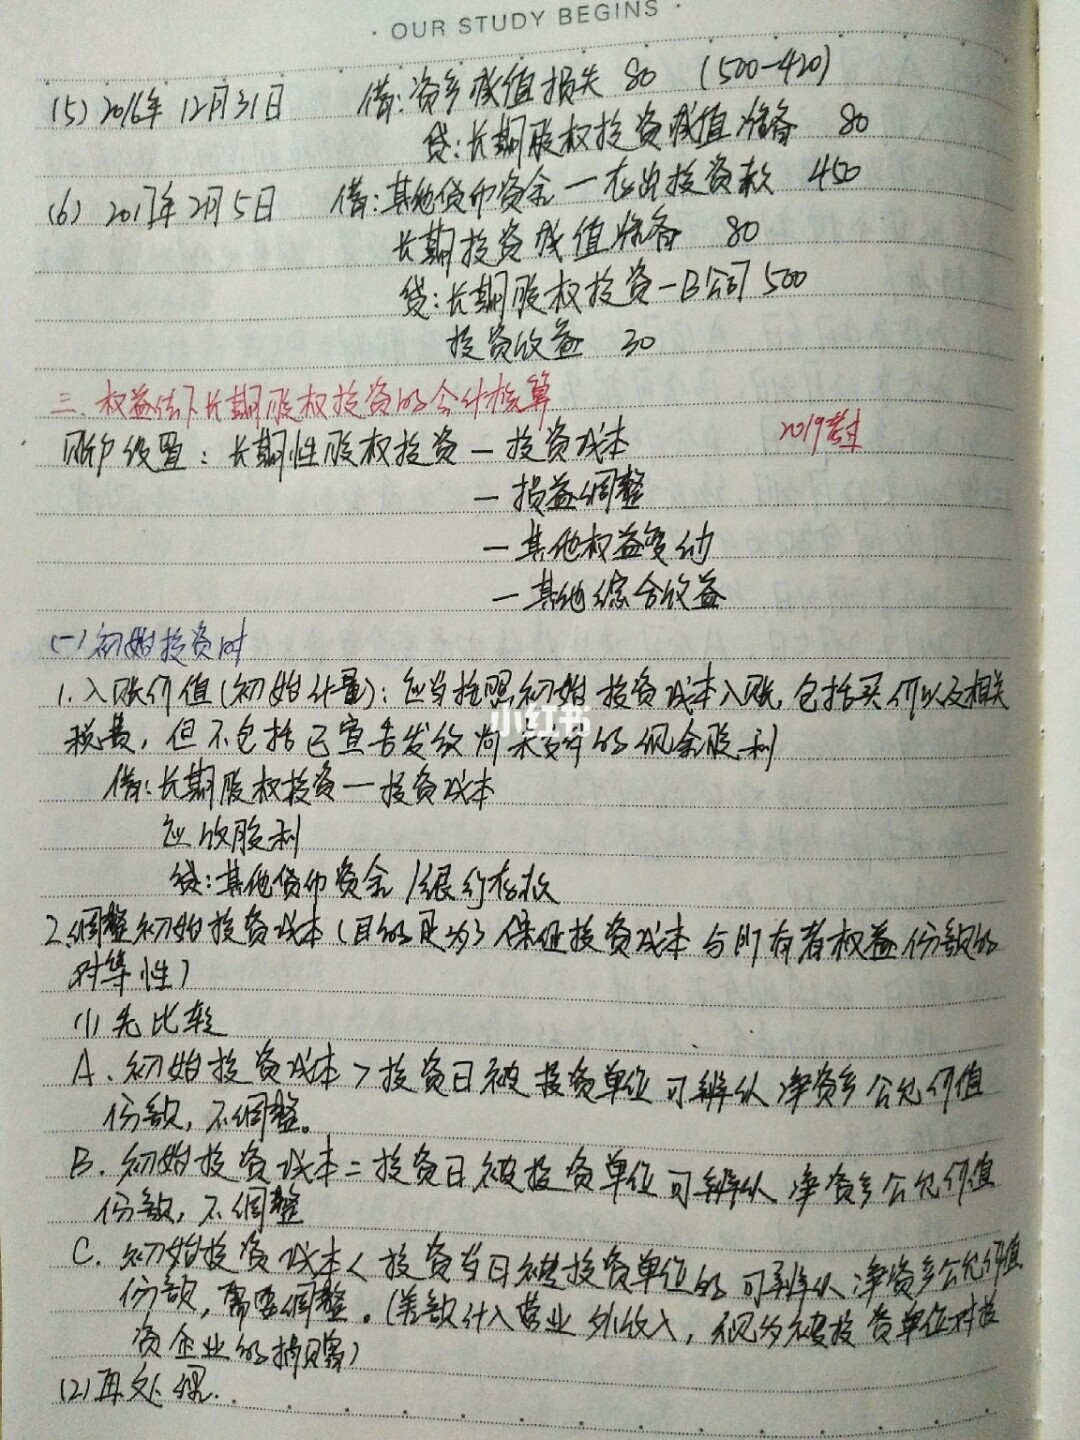 · OUR STUDY BEGINS ·
(5) 2016年12月31日 借:资产减值损失 80 (500-420)
贷:长期股权投资减值准备 80
(6) 2017年2月5日 借:其他货币资金一存出投资款 450
长期投资减值准备 80
贷:长期股权投资一B公司 500
投资收益 30
三、权益法下长期股权投资的会计核算
2019考过
账户设置:长期性股权投资 — 投资成本
— 损益调整
— 其他权益变动
— 其他综合收益
(一)初始投资时
1.入账价值(初始计量):应当按照初始投资成本入账,包括买价以及相关
税费,但不包括已宣告发放尚未支付的现金股利
小红书
借:长期股权投资一投资成本
应收股利
贷:其他货币资金/银行存款
2.调整初始投资成本(目的是为了保证投资成本与所有者权益份额的
对等性)
(1)先比较
A.初始投资成本>投资日被投资单位可辨认净资产公允价值
份额,不调整。
B.初始投资成本=投资日被投资单位可辨认净资产公允价值
份额,不调整
C.初始投资成本<投资当日被投资单位的可辨认净资产公允价值
份额,需要调整。(差额计入营业外收入,视为被投资单位对投
资企业的捐赠)
(2)再处理.